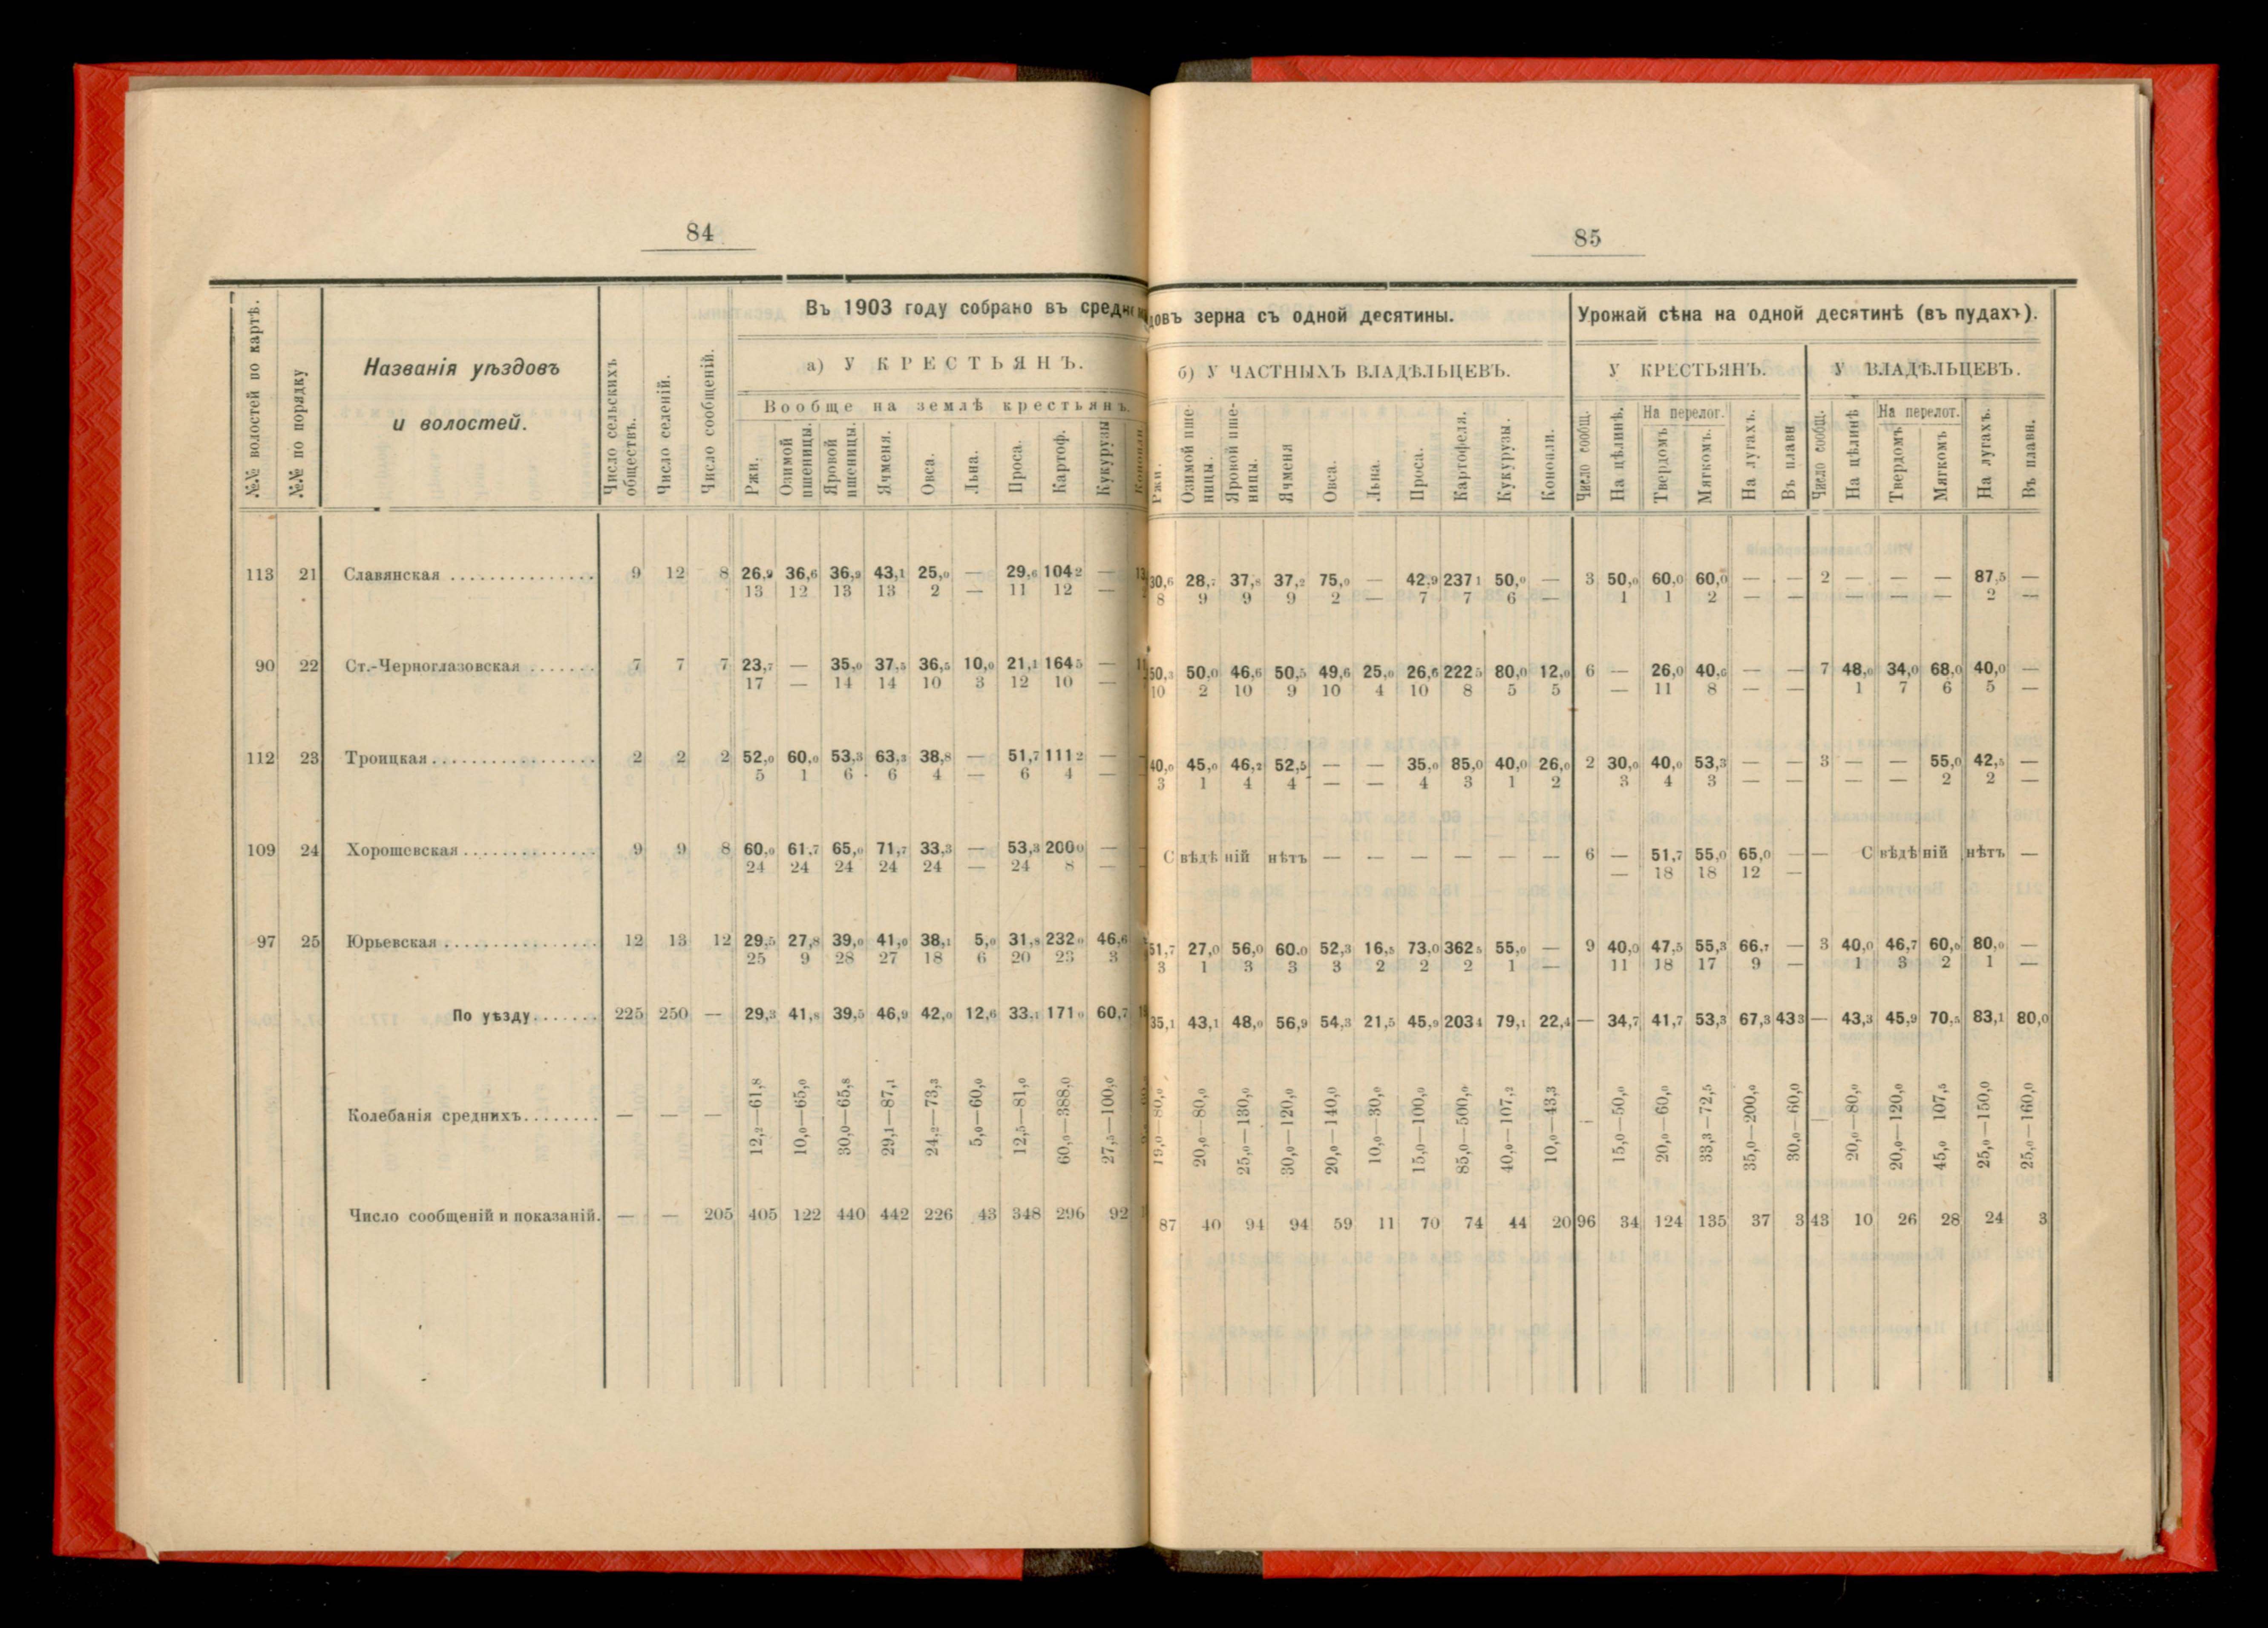 84
Въ 1903 году собрано въ
а) У КРЕСТЬЯНЪ.
Вообще на землѣ крестьянъ.
№№ волостей по картѣ.
№№ по порядку
Названія уѣздовъ
и волостей.
Число сельскихъ обществъ.
Число селеній.
Число сообщеній.
Ржи.
Озимой пшеницы.
Яровой пшеницы.
Ячменя.
Овса.
Льна.
Проса.
Картоф.
Кукурузы
113 21 Славянская 9 12 8 26,9 36,6 36,9 43,1 25,0 — 29,6 104,2 —
13 12 13 13 2 — 11 12 —
90 22 Ст.-Черноглазовская 7 7 7 23,7 — 35,0 37,5 36,5 10,0 21,1 164,5 —
17 — 14 14 10 3 12 10 —
112 23 Троицкая 2 2 2 52,0 60,0 53,3 63,3 38,8 — 51,7 111,2 —
5 1 6 6 4 — 6 4 —
109 24 Хорошевская 9 9 8 60,0 61,7 65,0 71,7 33,3 — 53,3 200,0 —
24 24 24 24 24 — 24 8 —
97 25 Юрьевская 12 13 12 29,5 27,8 39,0 41,0 38,1 5,0 31,8 232,0 46,6
25 9 28 27 18 6 20 23 3
По уѣзду 225 250 — 29,3 41,8 39,5 46,9 42,0 12,6 33,1 171,0 60,7
Колебанія среднихъ — — — 12,2—61,8 10,0—65,0 30,0—65,8 29,1—87,1 24,2—73,3 5,0—60,0 12,5—81,0 60,0—388,0 27,5—100,0
Число сообщеній и показаній. — — 205 405 122 440 442 226 43 348 296 92
85
зерна съ одной десятины.
Урожай сѣна на одной десятинѣ (въ пудахъ).
б) У ЧАСТНЫХЪ ВЛАДѢЛЬЦЕВЪ.
У КРЕСТЬЯНЪ.
У ВЛАДѢЛЬЦЕВЪ.
Ржи.
Озимой пшеницы.
Яровой пшеницы.
Ячменя
Овса.
Льна.
Проса.
Картофеля.
Кукурузы.
Конопли.
Число сообщ.
На цѣлинѣ.
На перелог.
Твердомъ
Мягкомъ.
На лугахъ.
Въ плавн
Число сообщ.
На цѣлинѣ
На перелог.
Твердомъ
Мягкомъ
На лугахъ.
Въ плавн.
30,6 28,7 37,8 37,2 75,0 — 42,9 237,1 50,0 — 3 50,0 60,0 60,0 — — 2 — — — 87,5 —
8 9 9 9 2 — 7 7 6 — 1 1 2 — — — — — 2 —
50,3 50,0 46,6 50,5 49,6 25,0 26,6 222,5 80,0 12,0 6 — 26,0 40,6 — — 7 48,0 34,0 68,0 40,0 —
10 2 10 9 10 4 10 8 5 5 — 11 8 — — 1 7 6 5 —
40,0 45,0 46,2 52,5 — — 35,0 85,0 40,0 26,0 2 30,0 40,0 53,3 — — 3 — — 55,0 42,5 —
3 1 4 4 — — 4 3 1 2 3 4 3 — — — — 2 2 —
Свѣдѣній нѣтъ — — — — — — 6 — 51,7 55,0 65,0 — — Свѣдѣній нѣтъ —
— 18 18 12 —
51,7 27,0 56,0 60,0 52,3 16,5 73,0 362,5 55,0 — 9 40,0 47,5 55,3 66,7 — 3 40,0 46,7 60,0 80,0 —
3 1 3 3 3 2 2 2 1 — 11 18 17 9 — 1 3 2 1 —
35,1 43,1 48,0 56,9 54,3 21,5 45,9 203,4 79,1 22,4 — 34,7 41,7 53,3 67,3 43,3 — 43,3 45,9 70,5 83,1 80,0
19,0—80,0 20,0—80,0 25,0—130,0 30,0—120,0 20,0—140,0 10,0—30,0 15,0—100,0 85,0—500,0 40,0—107,2 10,0—43,3 — 15,0—50,0 20,0—60,0 33,3—72,5 35,0—200,0 30,0—60,0 — 20,0—80,0 20,0—120,0 45,0—107,5 25,0—150,0 25,0—160,0
87 40 94 94 59 11 70 74 44 20 96 34 124 135 37 3 43 10 26 28 24 3